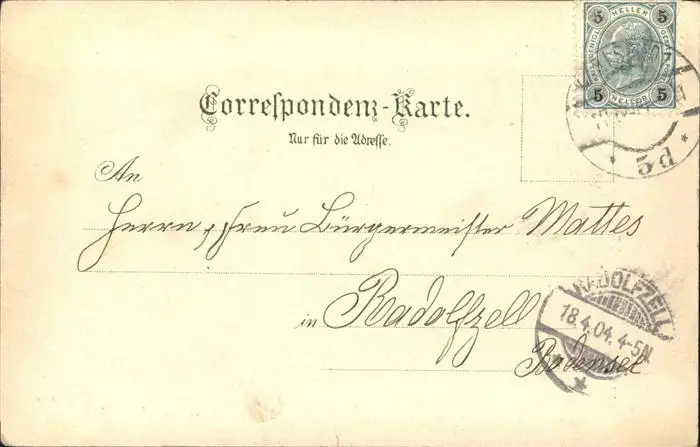 5 HELLER 5
5 HELLER 5
Correspondenz-Karte.
Nur für die Adresse.
An
Herrn, Frau Bürgermeister Mattes
in Radolfzell
Bodensee
RADOLFZELL
18.4.04. 4-5N.